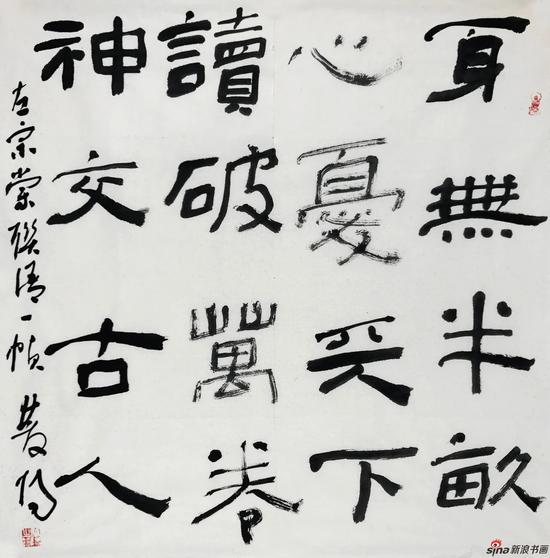 身無半畝
心憂天下
讀破萬卷
神交古人
左宗棠聯語一帧
sina新浪书画